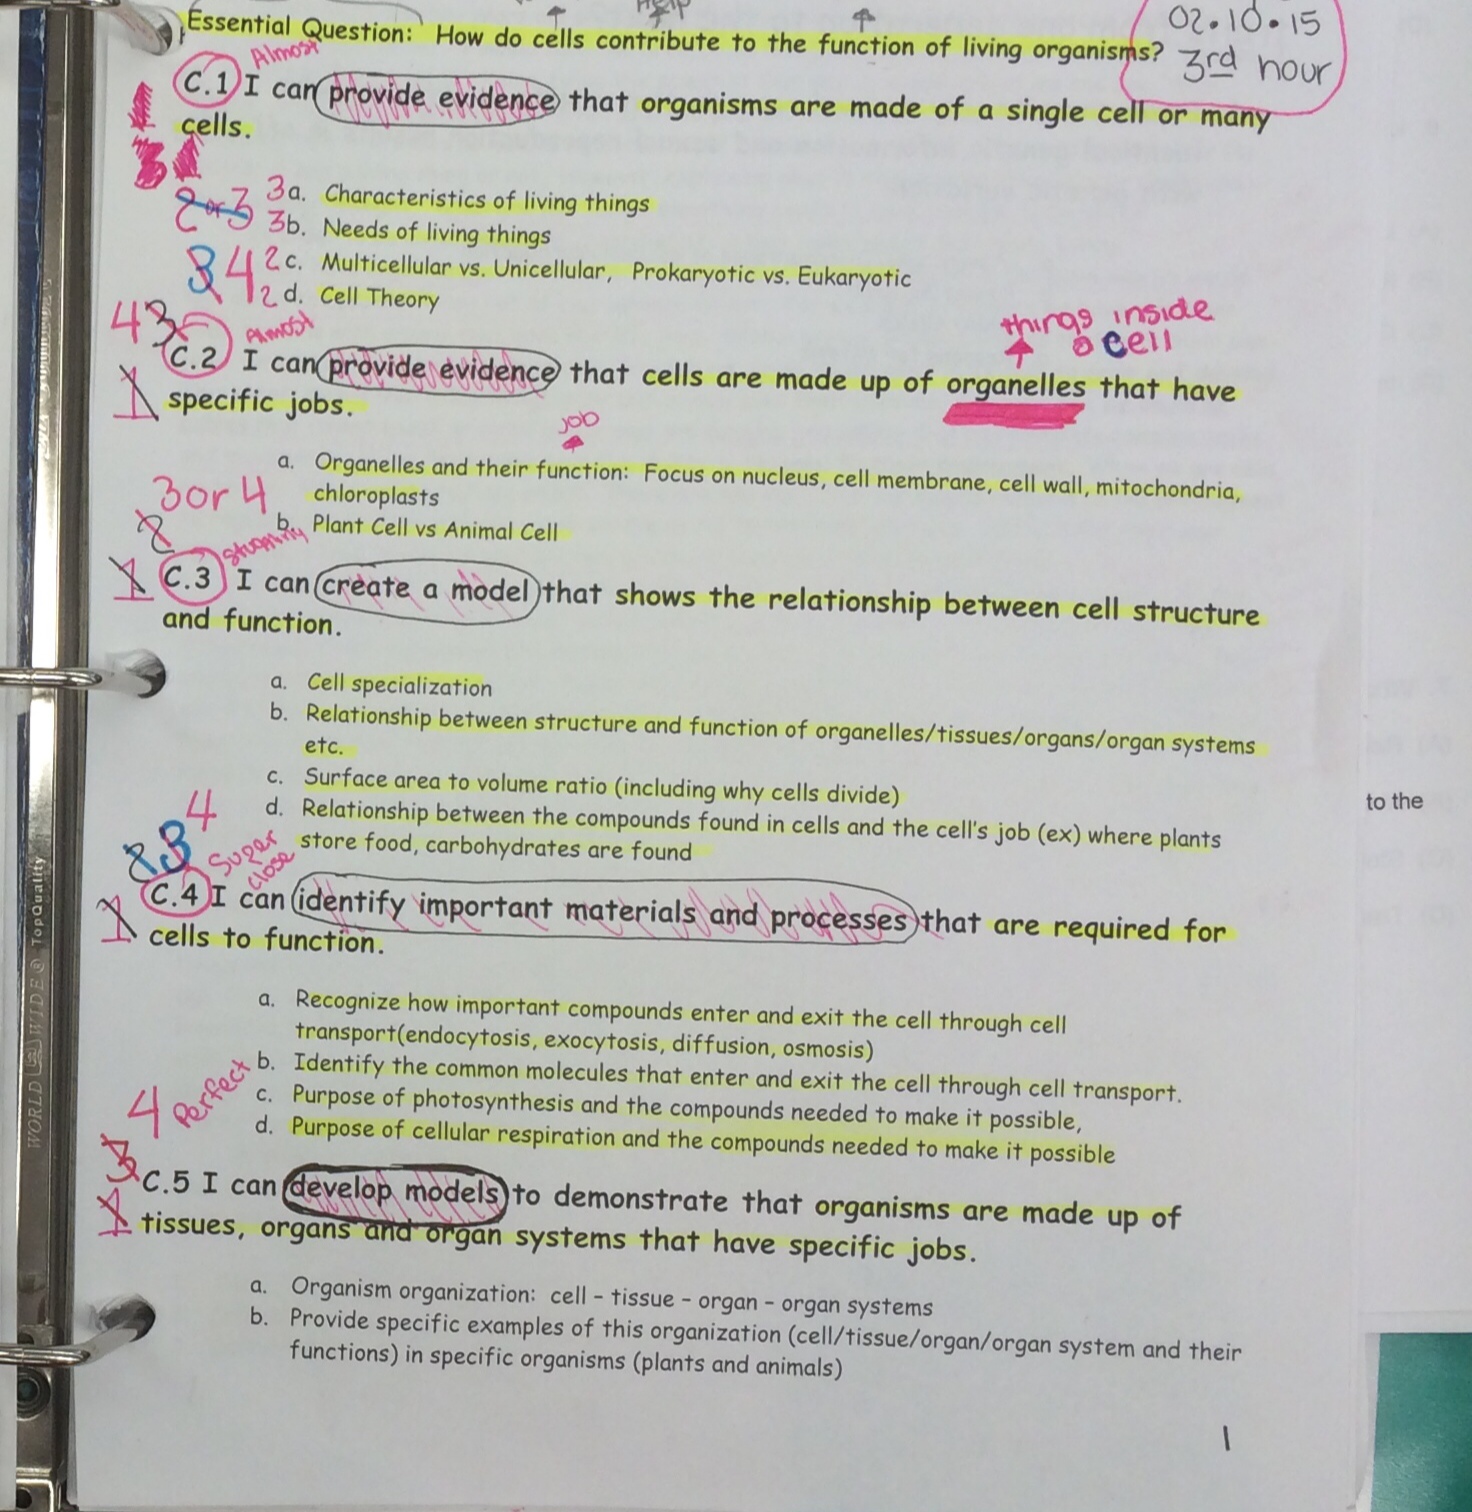 Help
02.10.15
Essential Question: How do cells contribute to the function of living organisms?
3rd hour
Almost
C.1 I can provide evidence that organisms are made of a single cell or many
cells.
2 or 3
3a. Characteristics of living things
3b. Needs of living things
3 4
2c. Multicellular vs. Unicellular, Prokaryotic vs. Eukaryotic
2d. Cell Theory
things inside
a cell
4 3
Almost
C.2 I can provide evidence that cells are made up of organelles that have
1 specific jobs.
job
a. Organelles and their function: Focus on nucleus, cell membrane, cell wall, mitochondria,
chloroplasts
3 or 4
b. Plant Cell vs Animal Cell
2
1 C.3 I can create a model that shows the relationship between cell structure
and function.
a. Cell specialization
b. Relationship between structure and function of organelles/tissues/organs/organ systems
etc.
c. Surface area to volume ratio (including why cells divide)
d. Relationship between the compounds found in cells and the cell's job (ex) where plants
store food, carbohydrates are found
to the
4
2 3
Super
close
C.4 I can identify important materials and processes that are required for
1 cells to function.
a. Recognize how important compounds enter and exit the cell through cell
transport(endocytosis, exocytosis, diffusion, osmosis)
b. Identify the common molecules that enter and exit the cell through cell transport.
c. Purpose of photosynthesis and the compounds needed to make it possible,
d. Purpose of cellular respiration and the compounds needed to make it possible
4 Perfect
3
C.5 I can develop models to demonstrate that organisms are made up of
1 tissues, organs and organ systems that have specific jobs.
a. Organism organization: cell - tissue - organ - organ systems
b. Provide specific examples of this organization (cell/tissue/organ/organ system and their
functions) in specific organisms (plants and animals)
1
WORLD WIDE TopQuality